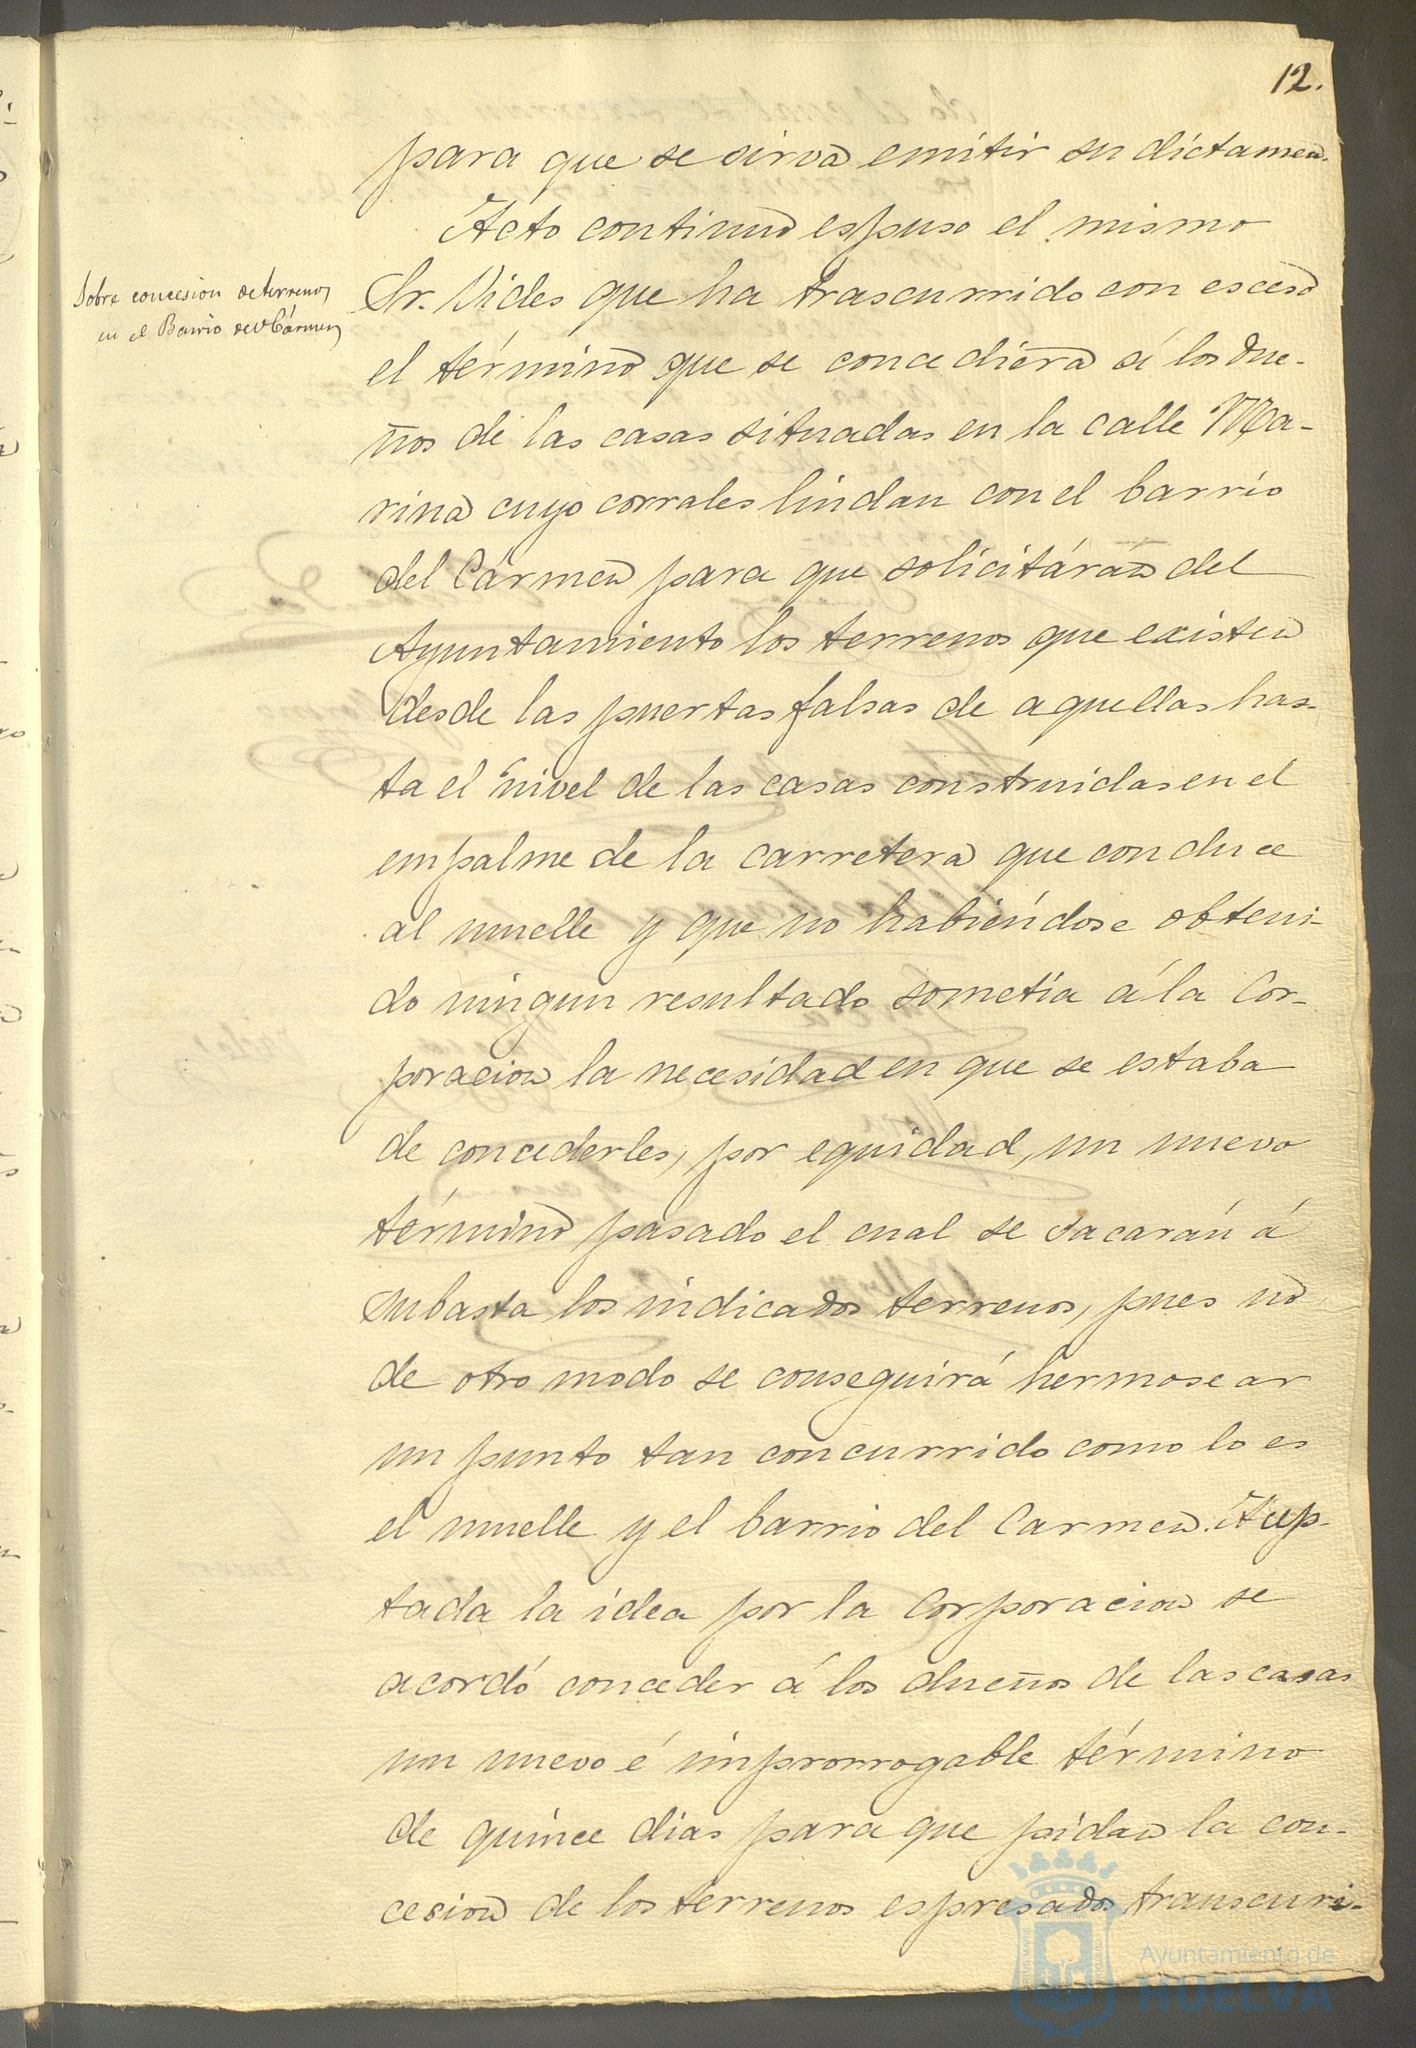 12.
para que se sirva emitir su dictamen.
Acto continuo espuso el mismo
Sobre concesion de terrenos
en el Barrio del Cármen
Sr. Vides que ha trascurrido con esceso
el término que se concediera á los due-
ños de las casas situadas en la calle Ma-
rina cuyo corrales lindan con el barrio
del Cármen para que solicitáran del
Ayuntamiento los terrenos que existen
desde las puertas falsas de aquellas has-
ta el nivel de las casas construidas en el
empalme de la carretera que conduce
al muelle y que no habiéndose obteni-
do ningun resultado sometía á la Cor-
poracion la necesidad en que se estaba
de concederles, por equidad, un nuevo
término pasado el cual se sacarán á
subasta los indicados terrenos, pues no
de otro modo se conseguirá hermosear
un punto tan concurrido como lo es
el muelle y el barrio del Carmen. Acep-
tada la idea por la Corporacion se
acordó conceder á los dueños de las casas
un nuevo é improrrogable término
de quince dias para que pidan la con-
cesion de los terrenos espresados transcurri-
Ayuntamiento de
HUELVA